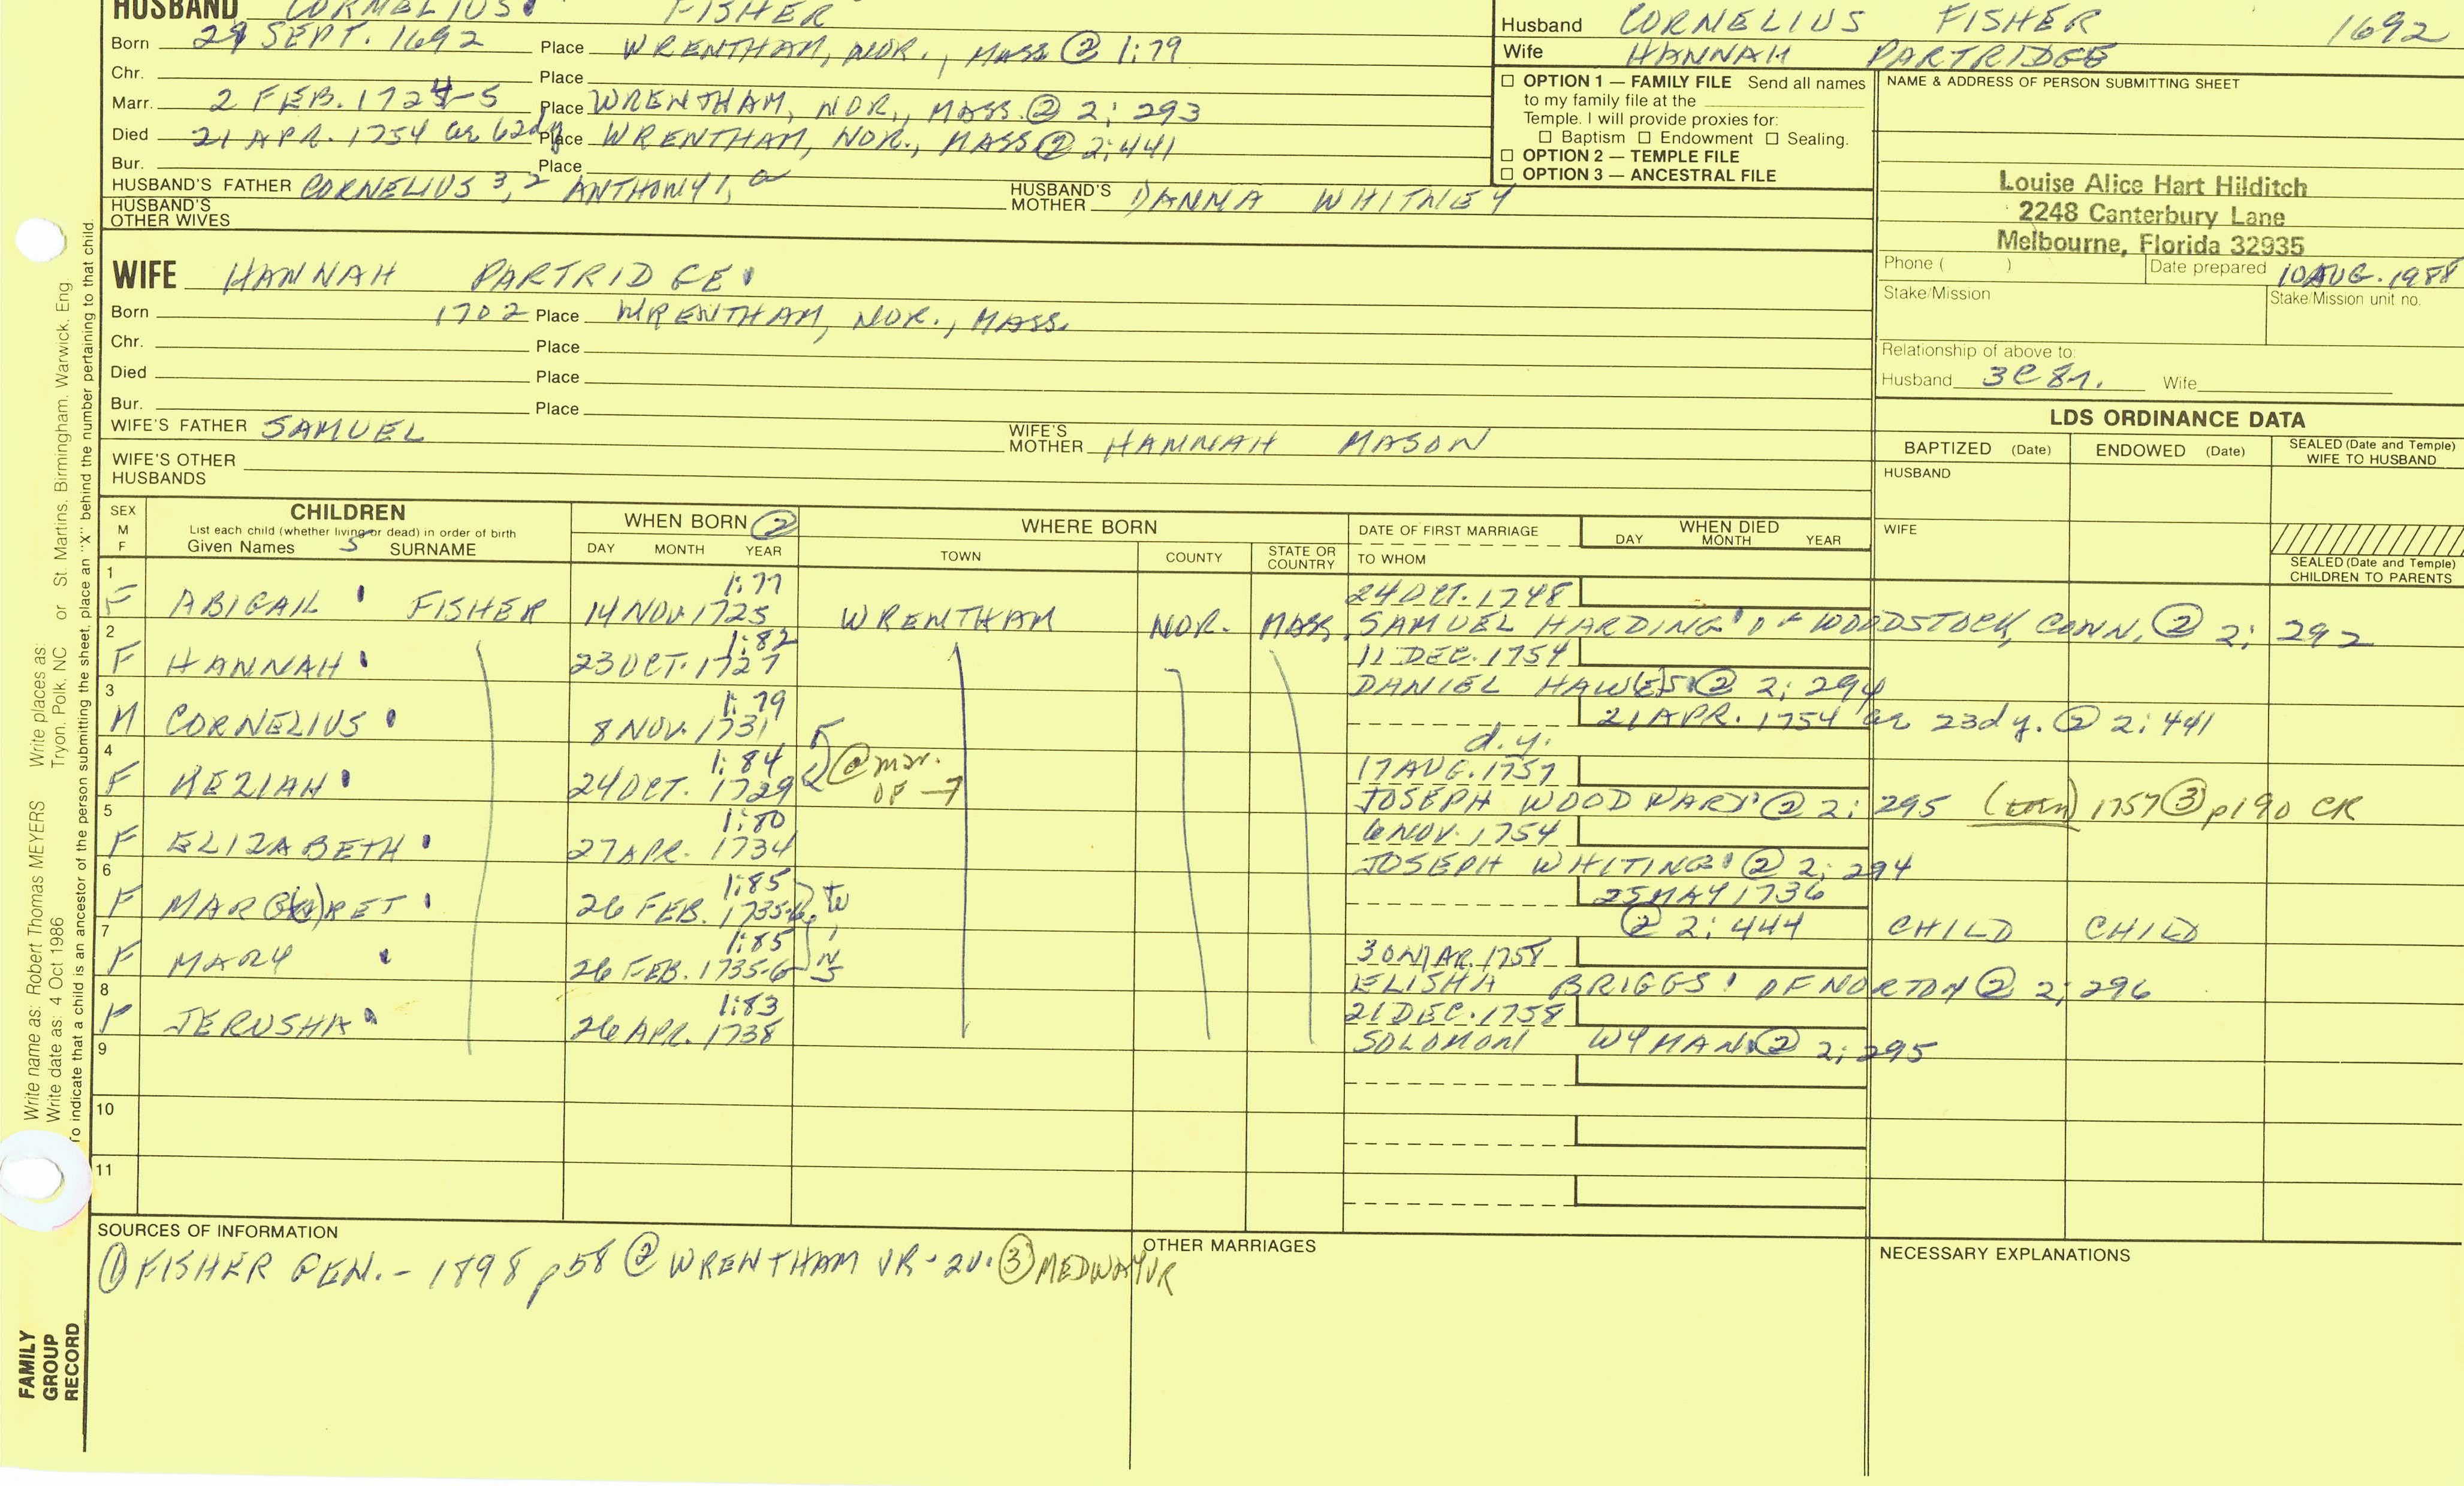 HUSBAND CORNELIUS FISHER
Born 29 SEPT. 1692 Place WRENTHAM, NOR., MASS @ 1:79
Chr. Place
Marr. 2 FEB. 1724-5 Place WRENTHAM, NOR., MASS. ② 2: 293
Died 21 APR. 1754 Place WRENTHAM, NOR., MASS ② 2:441
Bur. Place
HUSBAND'S FATHER CORNELIUS 3, 2 ANTHONY 1, HUSBAND'S MOTHER DANNA WHITNEY
HUSBAND'S OTHER WIVES
Husband CORNELIUS FISHER 1692
Wife HANNAH PARTRIDGE
☐ OPTION 1 — FAMILY FILE Send all names
to my family file at the
Temple. I will provide proxies for:
☐ Baptism ☐ Endowment ☐ Sealing.
☐ OPTION 2 — TEMPLE FILE
☐ OPTION 3 — ANCESTRAL FILE
NAME & ADDRESS OF PERSON SUBMITTING SHEET
Louise Alice Hart Hilditch
2248 Canterbury Lane
Melbourne, Florida 32935
Phone ( ) Date prepared 10 AUG. 1988
Stake/Mission Stake/Mission unit no.
Relationship of above to:
Husband 3C 8r. Wife
WIFE HANNAH PARTRIDGE
Born 1702 Place WRENTHAM, NOR., MASS.
Chr. Place
Died Place
Bur. Place
WIFE'S FATHER SAMUEL WIFE'S MOTHER HANNAH MASON
WIFE'S OTHER HUSBANDS
LDS ORDINANCE DATA
BAPTIZED (Date) ENDOWED (Date) SEALED (Date and Temple) WIFE TO HUSBAND
HUSBAND
WIFE
SEALED (Date and Temple) CHILDREN TO PARENTS
SEX M F
CHILDREN
List each child (whether living or dead) in order of birth
Given Names 5 SURNAME
WHEN BORN ②
DAY MONTH YEAR
WHERE BORN
TOWN COUNTY STATE OR COUNTRY
DATE OF FIRST MARRIAGE
TO WHOM
WHEN DIED
DAY MONTH YEAR
1 1:77 24 OCT. 1748
F ABIGAIL FISHER 14 NOV. 1725 WRENTHAM NOR. MASS. SAMUEL HARDING OF WOODSTOCK, CONN. ② 2: 292
2 1:82 11 DEC. 1754
F HANNAH 23 OCT. 1727 DANIEL HAW(E)S ② 2: 294
3 1:79 21 APR. 1754 ae 23dy. ② 2:441
M CORNELIUS 8 NOV. 1731 d.y.
4 1:84 @ mar. OF → 17 AUG. 1757
F KEZIAH 24 OCT. 1729 JOSEPH WOODWARD ② 2: 295 1757 ③ p190 CR
5 1:80 6 NOV. 1754
F ELIZABETH 27 APR. 1734 JOSEPH WHITING ② 2: 294
6 1:85 25 MAY 1736
F MARG(A)RET 26 FEB. 1735-6 ② 2: 444 CHILD CHILD
7 1:85 TWINS 30 MAR. 1758
F MARY 26 FEB. 1735-6 ELISHA BRIGGS OF NORTON ② 2: 296
8 1:83 21 DEC. 1758
F JERUSHA 26 APR. 1738 SOLOMON WYMAN ② 2: 295
9
10
11
SOURCES OF INFORMATION
① FISHER GEN. - 1898 p58 ② WRENTHAM VR - 2V. ③ MEDWAY VR
OTHER MARRIAGES
NECESSARY EXPLANATIONS
Write name as: Robert Thomas MEYERS Write places as: Tryon, Polk, NC or St Martins, Birmingham, Warwick, Eng.
Write date as: 4 Oct 1986
To indicate that a child is an ancestor of the person submitting the sheet, place an "X" behind the number pertaining to that child.
FAMILY
GROUP
RECORD